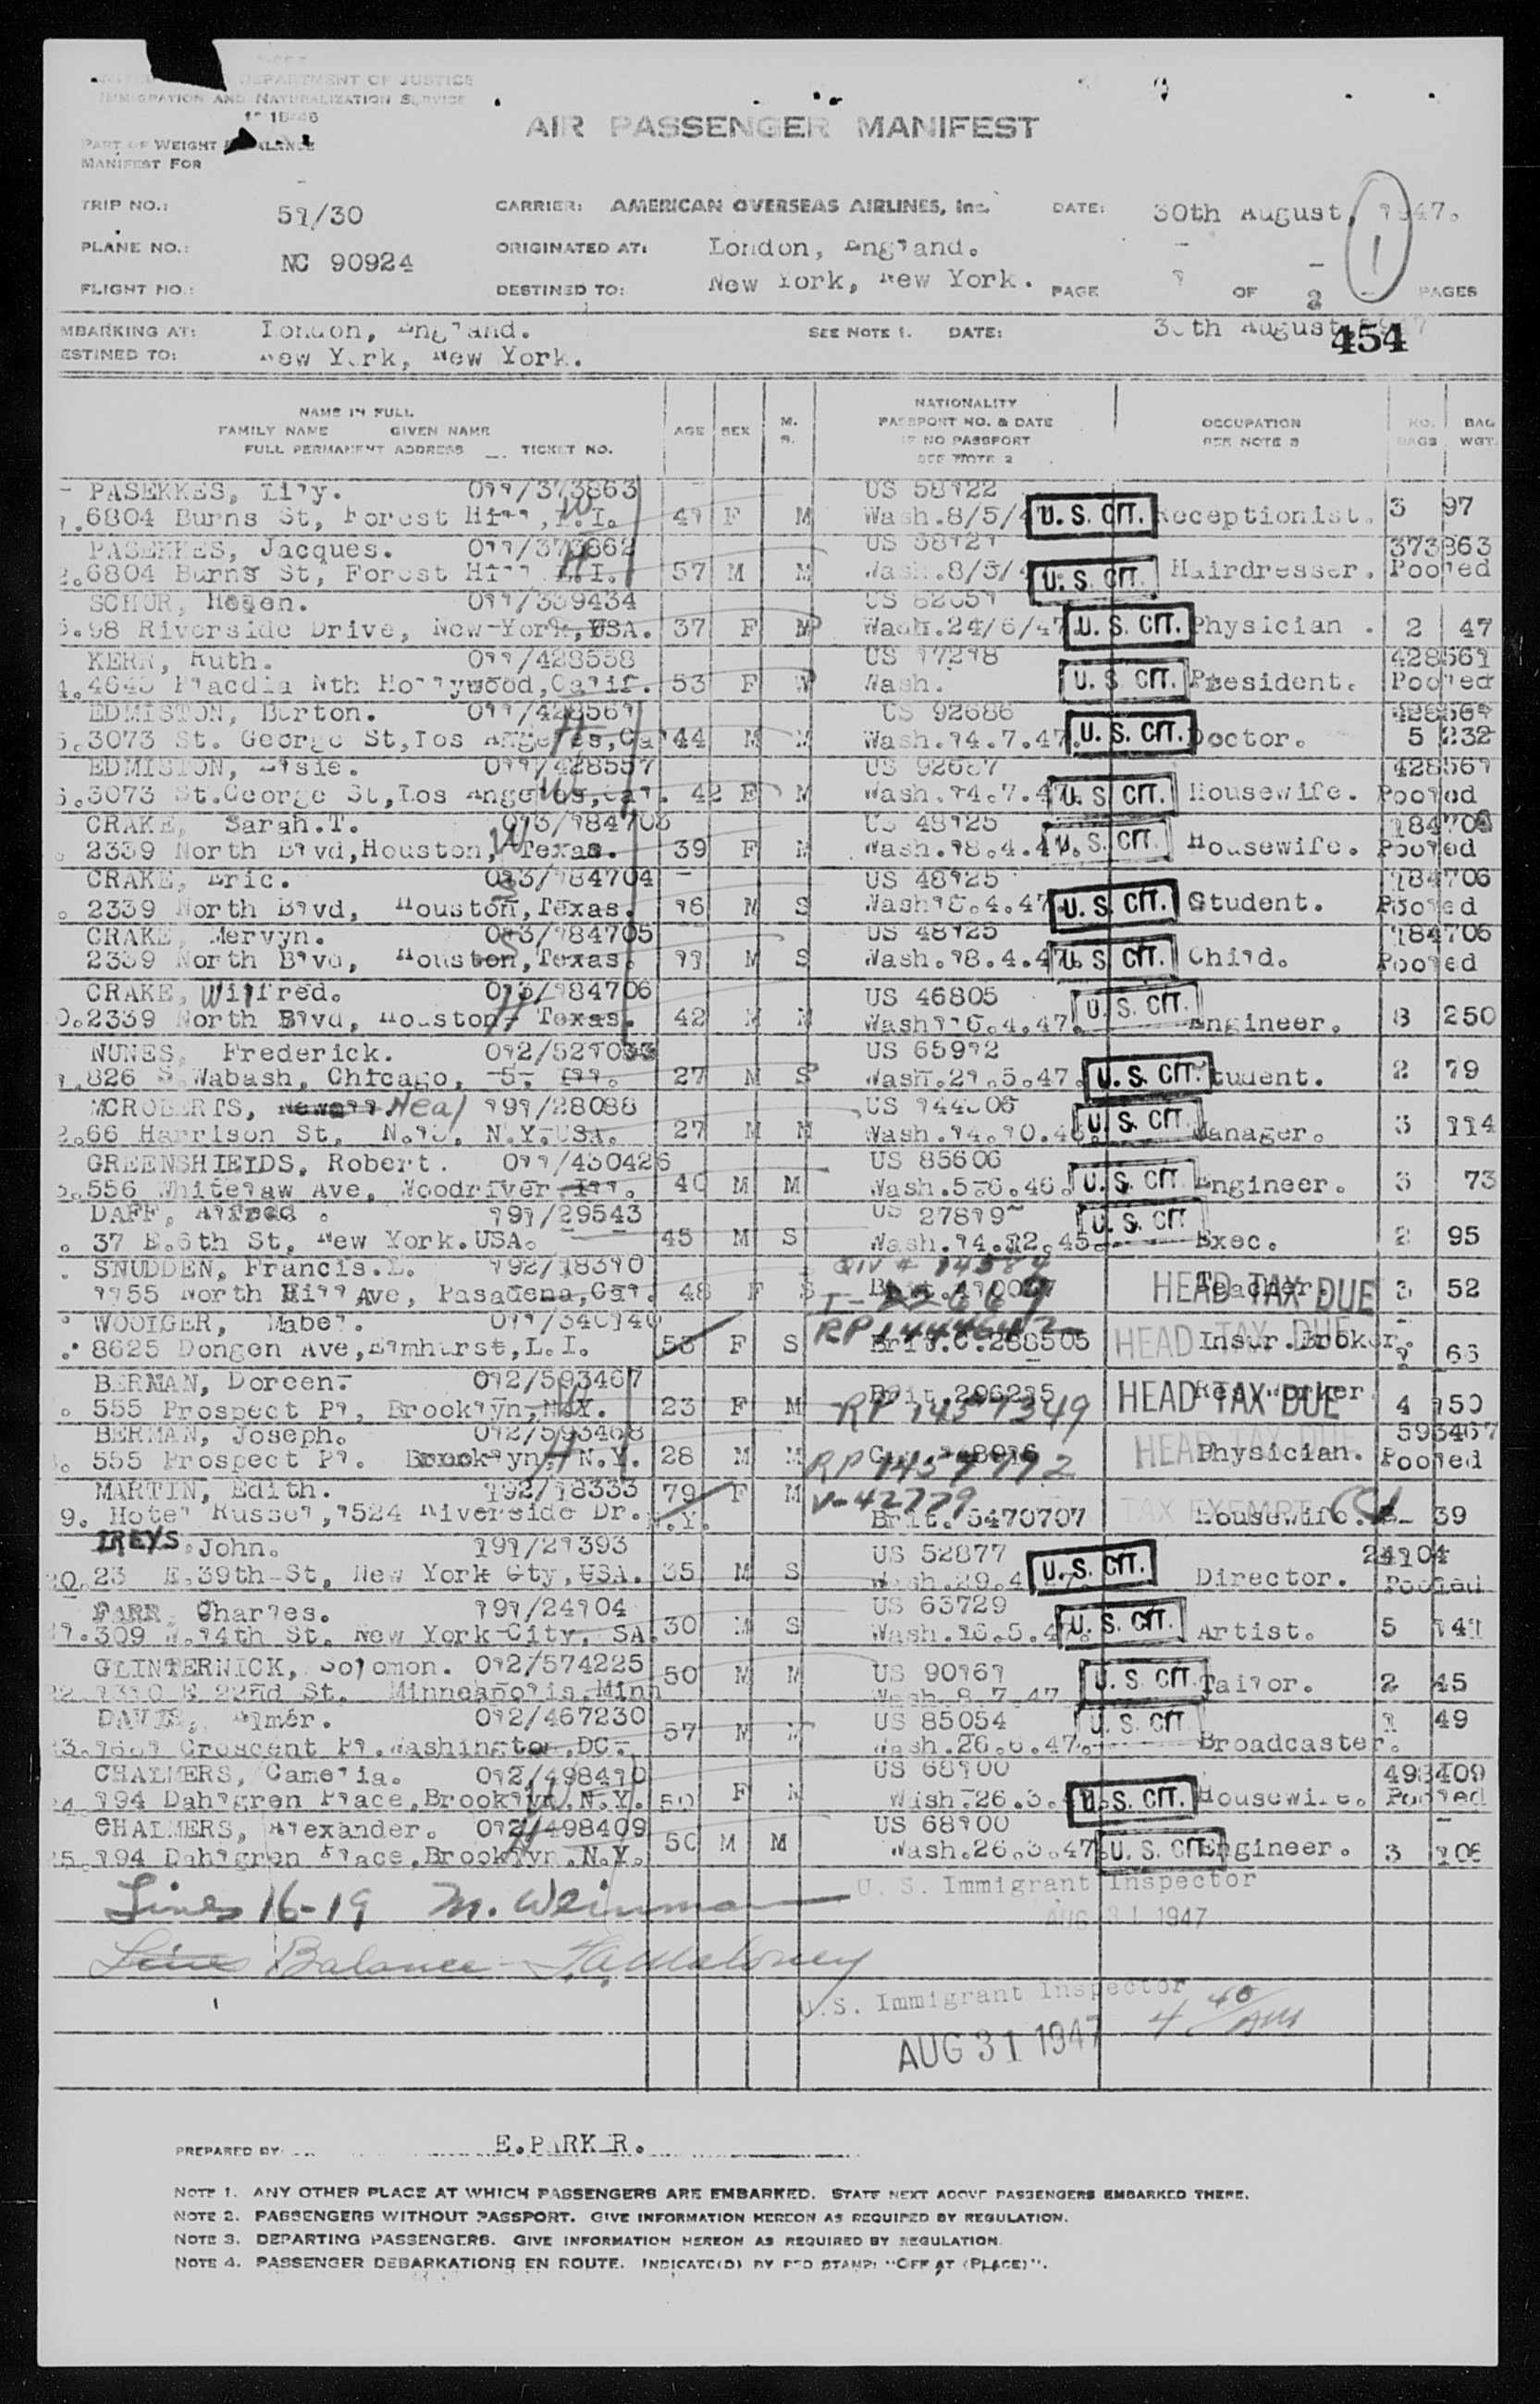 DEPARTMENT OF JUSTICE
IMMIGRATION AND NATURALIZATION SERVICE
AIR PASSENGER MANIFEST
PART OF WEIGHT
MANIFEST FOR
TRIP NO.: 51/30 CARRIER: AMERICAN OVERSEAS AIRLINES, Inc. DATE: 30th August, 1947.
PLANE NO.: NC 90924 ORIGINATED AT: London, England.
FLIGHT NO.: DESTINED TO: New York, New York. PAGE 1 OF 2 PAGES
1
MBARKING AT: London, England. SEE NOTE 1. DATE: 30th August 1947
ESTINED TO: New York, New York. 454
NAME IN FULL
FAMILY NAME GIVEN NAME
FULL PERMANENT ADDRESS TICKET NO. AGE SEX M. S. NATIONALITY PASSPORT NO. & DATE IF NO PASSPORT SEE NOTE 2 OCCUPATION PER NOTE 3 NO. BAGS BAG WGT.
PASEKKES, Lily. 011/373863 US 58122
1.6804 Burns St, Forest Hill, L.I. W 41 F M Wash.8/5/4 U.S. CIT. Receptionist. 3 97
PASEKKES, Jacques. 011/373862 US 58121 373863
2.6804 Burns St, Forest Hill L.I. H 57 M M Wash.8/5/4 U.S. CIT. Hairdresser. Pooled
SCHUR, Helen. 011/339434 US 82051
98 Riverside Drive, New York, USA. 37 F M Wash.24/6/47 U.S. CIT. Physician. 2 47
KERR, Ruth. 011/428558 US 17218 428561
4.4645 Placdia Nth Hollywood, Calif. 53 F W Wash. U.S. CIT. President. Pooled
EDMISTON, Burton. 011/428561 US 92686 428561
3073 St. George St, Los Angeles, Cal 44 M M Wash.14.7.47. U.S. CIT. Doctor. 5 232
EDMISTON, Elsie. 011/428557 US 92687 428561
3073 St.George St, Los Angeles, Cal. W 42 F M Wash.14.7.47. U.S. CIT. Housewife. Pooled
CRAKE, Sarah.T. 013/184703 US 48125 184706
2339 North Blvd, Houston, Texas. W 39 F M Wash.18.4.47. U.S. CIT. Housewife. Pooled
CRAKE, Eric. 013/184704 US 48125 184706
2339 North Blvd, Houston, Texas. S 16 M S Wash18.4.47 U.S. CIT. Student. Pooled
CRAKE, Mervyn. 013/184705 US 48125 184706
2339 North Blvd, Houston, Texas. S 11 M S Wash.18.4.47. U.S. CIT. Child. Pooled
CRAKE, Wilfred. 013/184706 US 46805
0.2339 North Blvd, Houston, Texas. H 42 M M Wash116.4.47. U.S. CIT. Engineer. 8 250
NUNES, Frederick. 012/521033 US 65912
1.826 S.Wabash, Chicago, 5, Ill. 27 M S Wash.21.5.47. U.S. CIT. Student. 2 79
MCROBERTS, Neal 191/28088 US
2.66 Harrison St, N.Y. USA. 27 M M Wash.14.10.46. U.S. CIT. Manager. 3 114
GREENSHIELDS, Robert. 011/430426 US 85606
556 Whitelaw Ave, Woodriver Ill. 40 M M Wash.5.6.46. U.S. CIT. Engineer. 3 73
DAFF, Alfred. 191/29543 US 27819
37 E.6th St, New York.USA. 45 M S Wash.14.12.45. U.S. CIT Exec. 2 95
SNUDDEN, Francis.L. 192/18310
1155 North Hill Ave, Pasadena, Cal. 48 F S HEAD TAX DUE Teacher. 3 52
WOOLGER, Mabel. 011/340140
8625 Dongen Ave, Elmhurst, L.I. 53 F S Brit.C.288505 HEAD TAX DUE Insur.Broker. 1 66
BERMAN, Doreen. 012/593467
555 Prospect Pl, Brooklyn, N.Y. W 23 F M Brit.206235 RP 1457349 HEAD TAX DUE 4 150
BERMAN, Joseph. 012/593468 593467
555 Prospect Pl. Brooklyn, N.Y. H 28 M M HEAD TAX DUE Physician. Pooled
MARTIN, Edith. 192/18333 V-42779
9. Hotel Russel, 1524 Riverside Dr. N.Y. 79 F M Brit. 5470707 TAX EXEMPT Housewife. 39
IREYS, John. 191/21393 US 52877 24104
20.23 E.39th St, New York Cty, USA. 35 M S Wash.29.4.47. U.S. CIT. Director. Pooled
FARR, Charles. 191/24104 US 63729
309 W.14th St, New York City, SA. 30 M S Wash.16.5.47. U.S. CIT. Artist. 5 141
GLINTERNICK, Solomon. 012/574225 US 90161
22.1310 E 22nd St. Minneapolis, Minn 50 M M Wash.8.7.47 U.S. CIT. Tailor. 2 45
DAVIS, Elmer. 012/467230 US 85054
Crescent Pl. Washington, DC. 57 M M Wash.26.6.47. U.S. CIT Broadcaster. 1 49
CHALMERS, Camelia. 012/498410 US 68100 498409
24.194 Dahlgren Place, Brooklyn, N.Y. W 50 F M Wash.26.3.47. U.S. CIT. Housewife. Pooled
CHALMERS, Alexander. 012/498409 US 68100
25.194 Dahlgren Place, Brooklyn, N.Y. H 50 M M Wash.26.3.47. U.S. CIT. Engineer. 3 106
Lines 16-19 M. Weinman U. S. Immigrant Inspector
AUG 31 1947
Lines Balance F.A. Maloney
U.S. Immigrant Inspector 4 40/AM
AUG 31 1947
PREPARED BY E.PARK R.
NOTE 1. ANY OTHER PLACE AT WHICH PASSENGERS ARE EMBARKED. STATE NEXT ABOVE PASSENGERS EMBARKED THERE.
NOTE 2. PASSENGERS WITHOUT PASSPORT. GIVE INFORMATION HEREON AS REQUIRED BY REGULATION.
NOTE 3. DEPARTING PASSENGERS. GIVE INFORMATION HEREON AS REQUIRED BY REGULATION.
NOTE 4. PASSENGER DEBARKATIONS EN ROUTE. INDICATE(D) BY RED STAMP: "OFF AT (PLACE)".